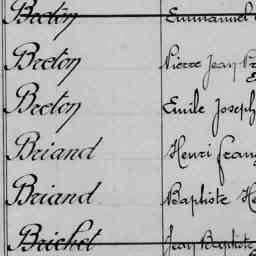 Breton Emmanuel
Breton Pierre Jean
Breton Emile Joseph
Briand Henri
Briand Baptiste
Brichet Jean Baptiste